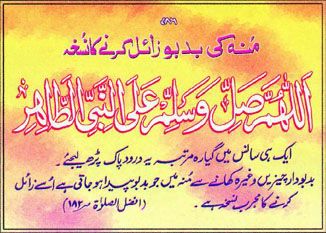 ۷۸۶
مُنہ کی بدبو زائل کرنے کا نسخہ
اَللّٰھُمَّ صَلِّ وَسَلِّمْ عَلَی النَّبِیِّ الطَّاھِرِ
ایک ہی سانس میں گیارہ مرتبہ یہ درود پاک پڑھ لیجئے۔
بدبودار چیزیں وغیرہ کھانے سے مُنہ میں جو بدبو پیدا ہو جاتی ہے اُسے زائل
کرنے کا مجرب نسخہ ہے۔ (افضل الصلوٰۃ ص ۱۸۲)